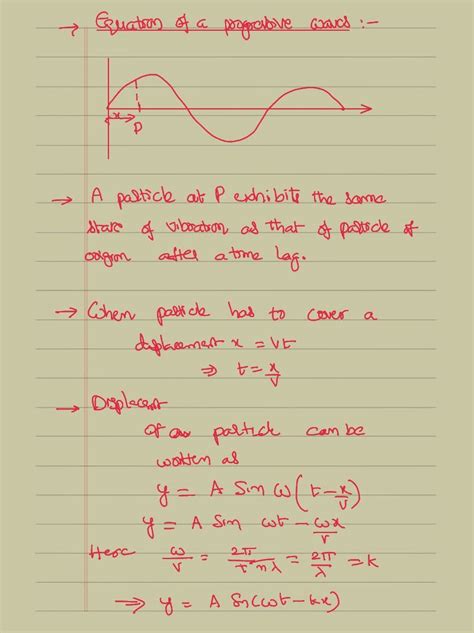 → Equation of a progressive waves :-
x
P
→ A particle at P exhibits the same
state of vibration as that of particle of
origin after a time lag.
→ When particle has to cover a
displacement x = vt
⇒ t = x/v
→ Displacent
of an particle can be
written as
y = A Sin ω(t - x/v)
y = A Sin ωt - ωx/v
Here ω/v = 2π/T×nλ = 2π/λ = k
⇒ y = A Sin(ωt - kx)